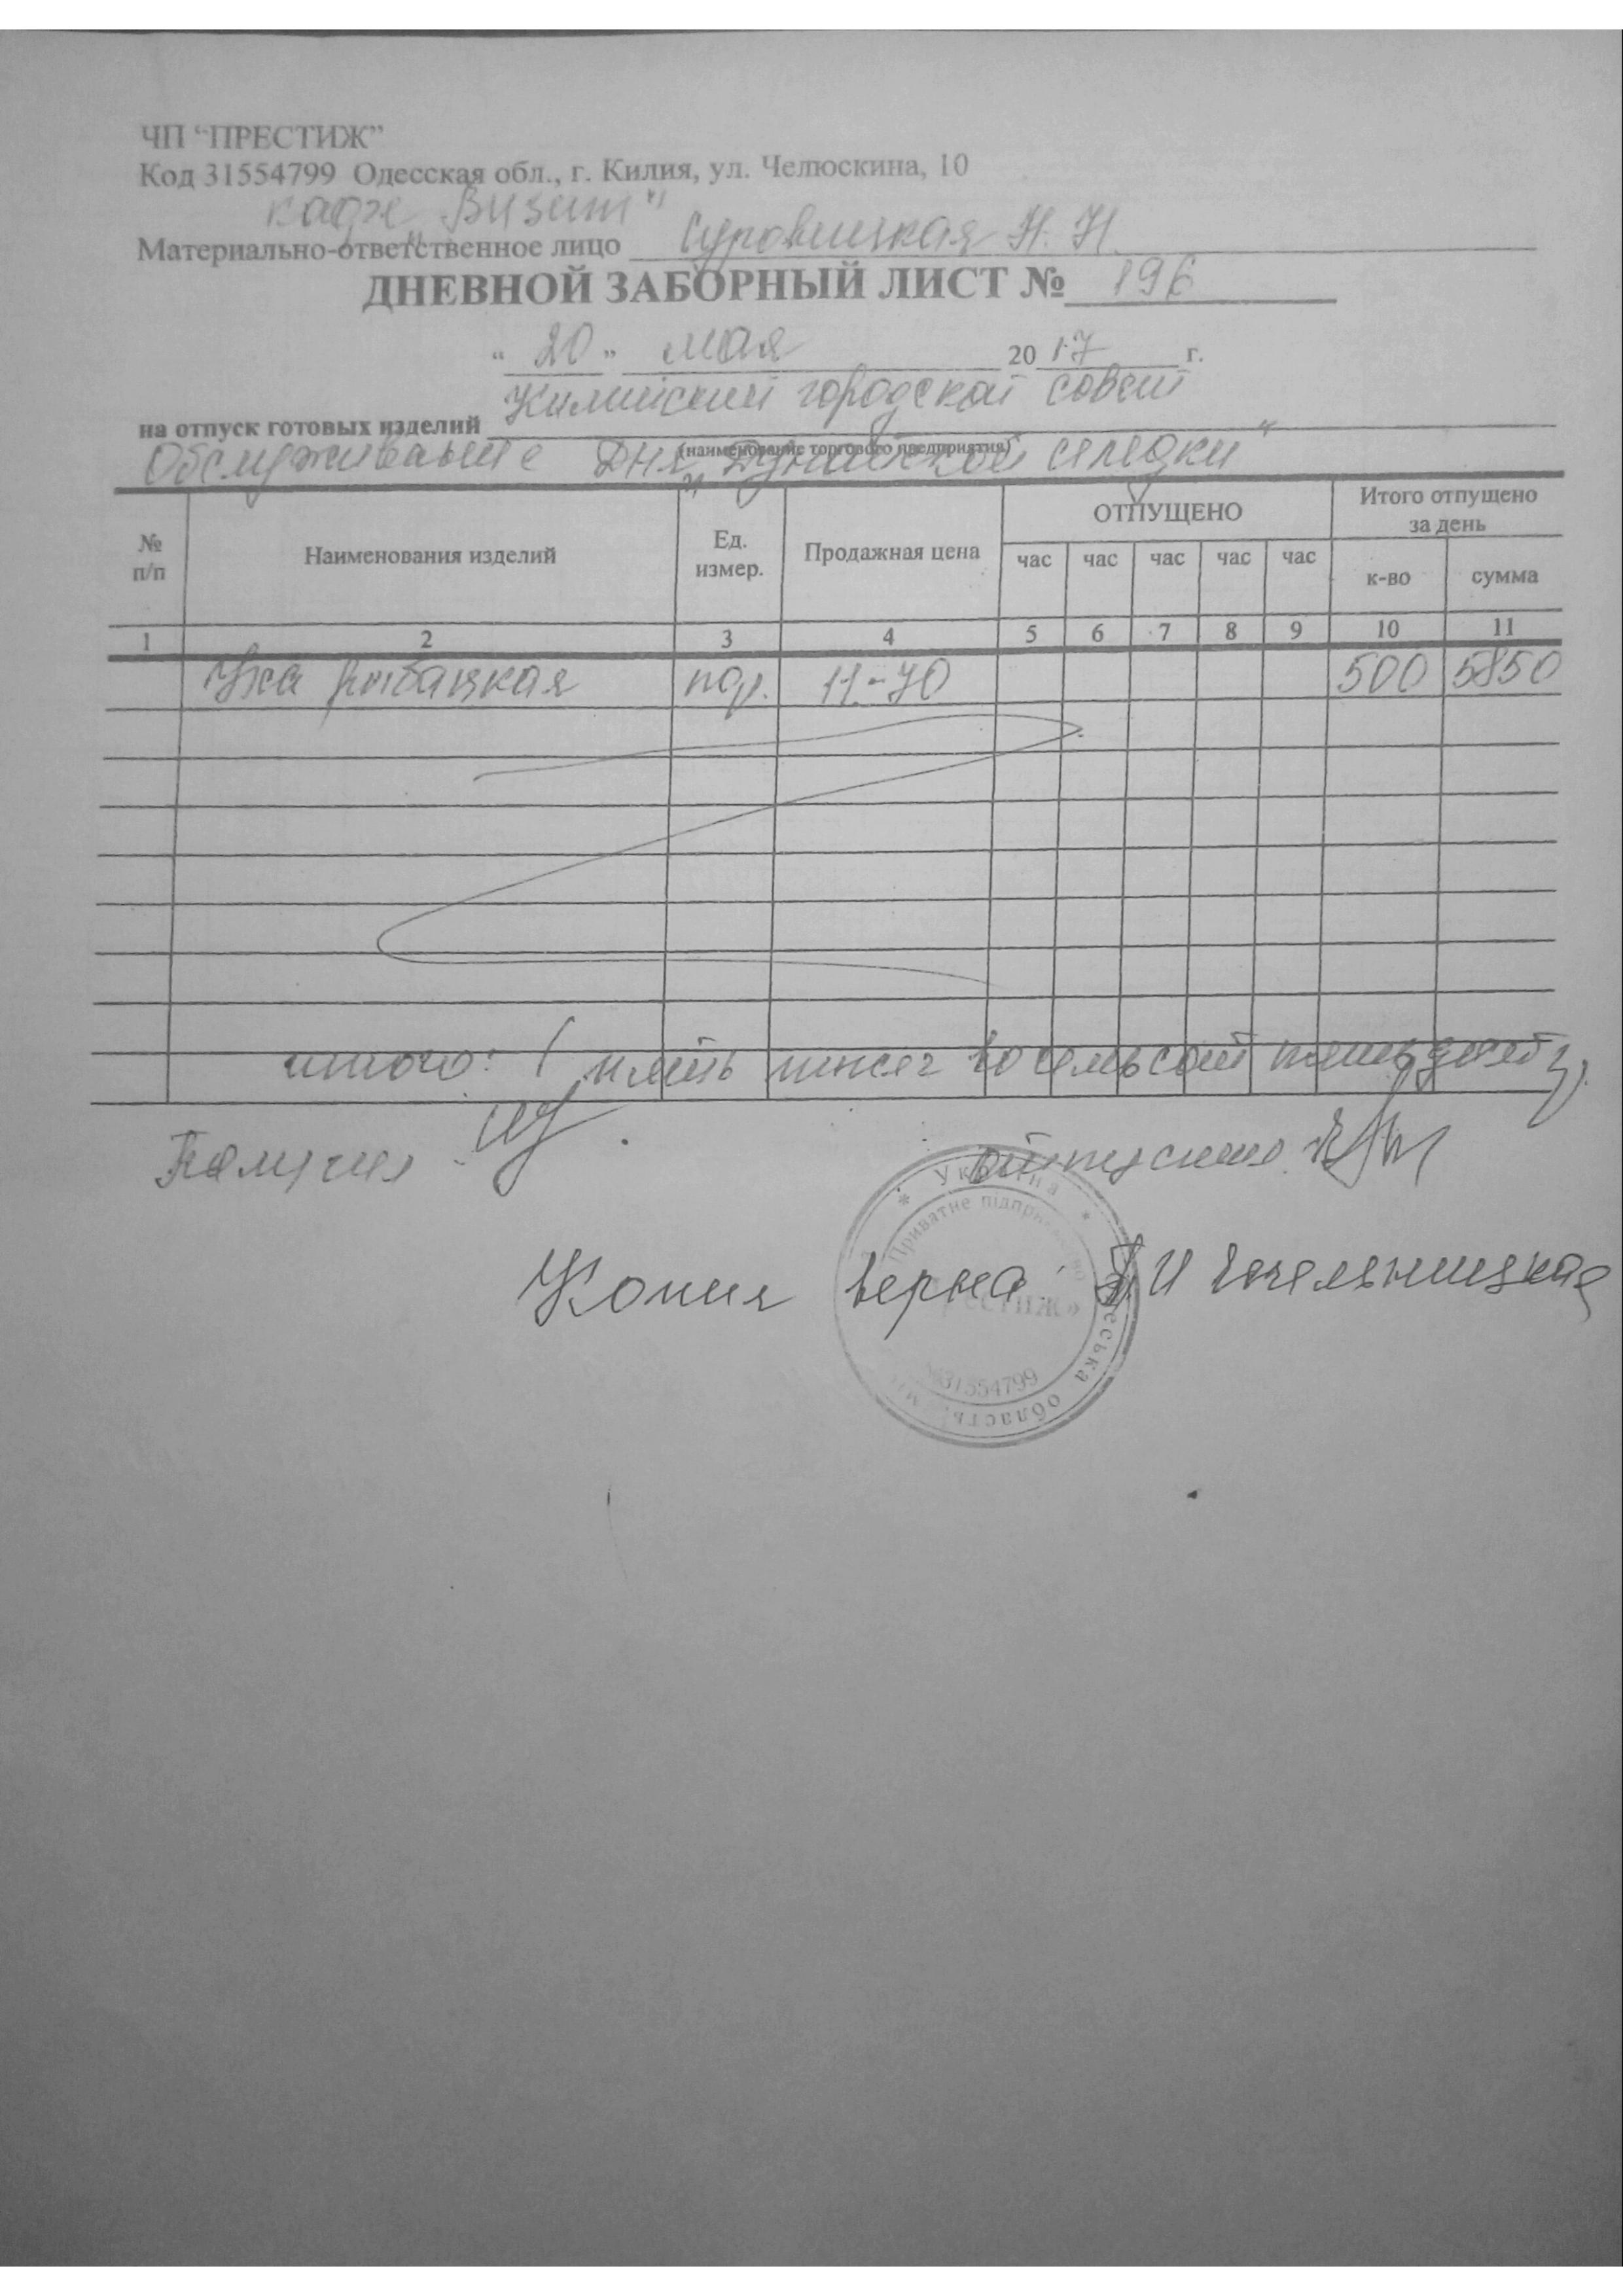 ЧП “ПРЕСТИЖ”
Код 31554799 Одесская обл., г. Килия, ул. Челюскина, 10
кафе „Визит"
Материально-ответственное лицо Суровицкая Н. Н.
ДНЕВНОЙ ЗАБОРНЫЙ ЛИСТ № 196
“ 20 ” мая 20 17 г.
Килийский городской совет
на отпуск готовых изделий
(наименование торгового предприятия)
Обслуживание дня „Дунайской селедки"
№ п/п Наименования изделий Ед. измер. Продажная цена ОТПУЩЕНО Итого отпущено за день
час час час час час к-во сумма
1 2 3 4 5 6 7 8 9 10 11
Уха рыбацкая пор. 11-70 500 5850
итого: (пять тысяч восемьсот пятьдесят)
Получил отпустил
* Україна *
Приватне підприємство
Копия верна
«ПРЕСТИЖ»
31554799
Одеська область